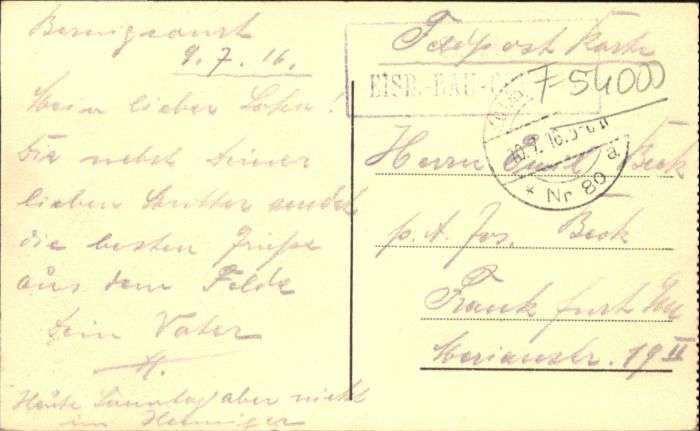 9. 7. 16.
Mein lieber Sohn!
Dir nebst Deiner
lieben Mutter sendet
die besten Grüße
aus dem Felde
Dein Vater
Heute Sonntag aber nicht
im
Feldpost Karte
EISB.-BAU-
F 54000
10.7.16.
* Nr 80 a.
Herrn Beck
p. A. Jos. Beck
Frankfurt
Merianstr. 19 II